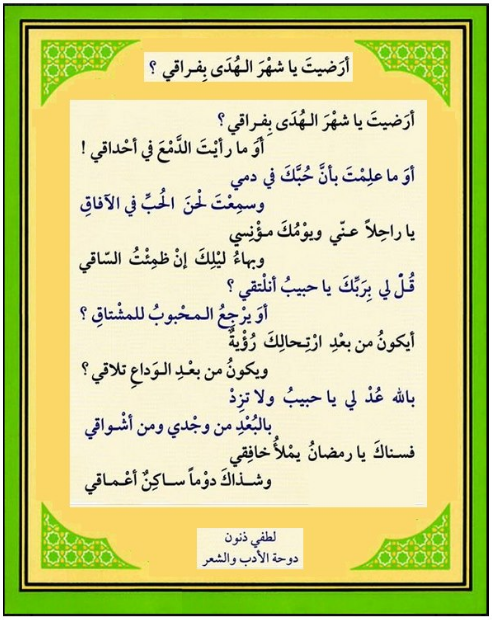 أرَضيتَ يا شهْرَ الـهُدَى بِفـراقي ؟
أرَضيتَ يا شهْرَ الـهُدَى بِفِـراقي ؟
أوَ ما رأيْتَ الدَّمْعَ في أحْداقي !
أوَ ما علِمْتَ بأنَّ حُبَّكَ في دمي
وسمِعْتَ لَحْنَ الحُبِّ في الآفاقِ
يا راحِلاً عنّي ويوْمُكَ مـؤْنِسي
وبهاءُ ليْلِكَ إنْ ظمِئْتُ السّاقي
قُـلْ لي بِرَبِّكَ يا حبيبُ أنلْتقي ؟
أوَ يرْجِعُ المـحْبوبُ للمشْتاقِ ؟
أيكونُ من بعْدِ ارْتِـحالِكَ رُؤْيةٌ
ويكونُ من بعْـدِ الـوَداعِ تلاقي ؟
بالله عُدْ لي يا حبيبُ ولا تزِدْ
بالبُعْدِ من وجْدي ومن أشْـواقي
فسـناكَ يا رمضانُ يمْلأُ خافِقي
وشـذاكَ دوْماً سـاكِنٌ أعْـماقي
لطفي ذنون
دوحة الأدب والشعر